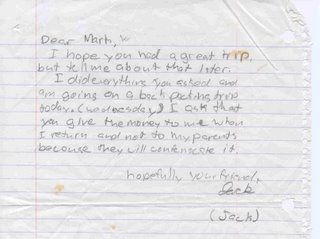 Dear Mark,
I hope you had a great trip,
but tell me about that later.
I did everything you asked and
am going on a back packing trip
today. (wednesday) I ask that
you give the money to me when
I return and not to my parents
because they will confenscate it.
hopefully your friend,
Jack
(Jack)